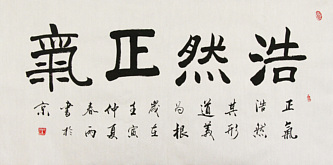 浩然正氣
正氣
浩然
其形
道義
為根
歲在
壬寅
仲夏
春雨
書於
京